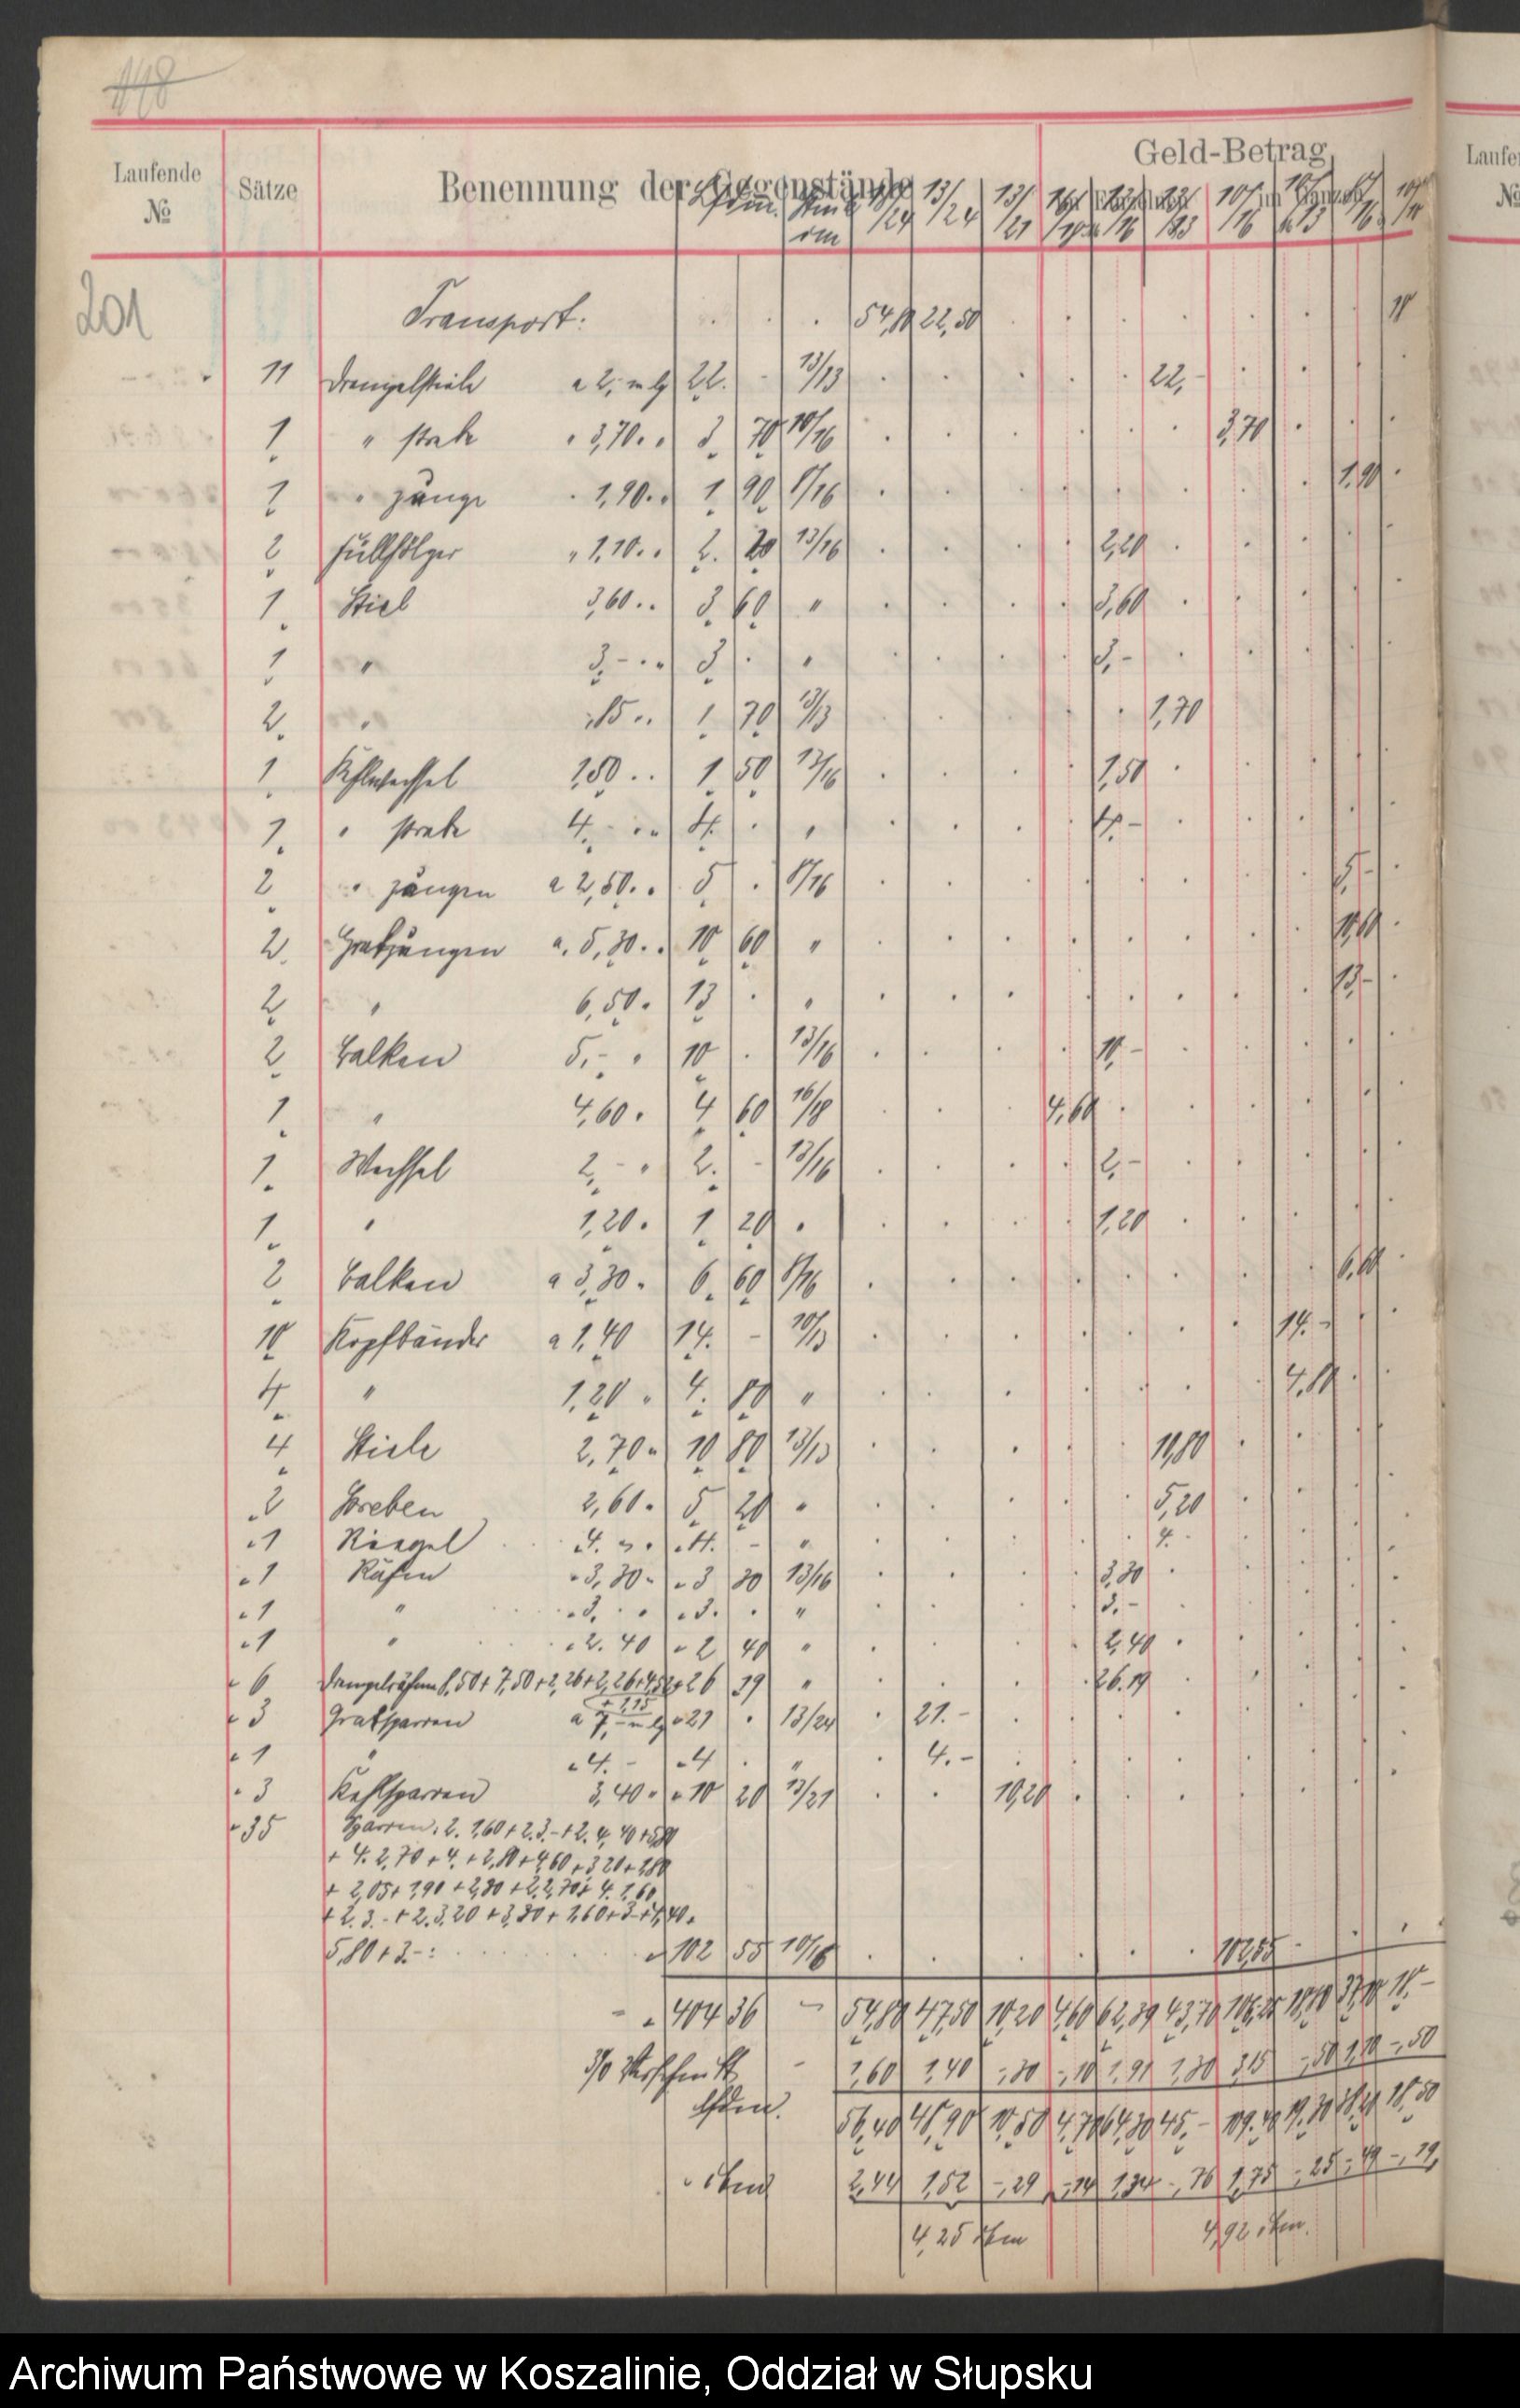 148
Laufende № Sätze Benennung der Gegenstände Geld-Betrag
lfdm. Stärke cm 18/24 13/24 13/21 16/18 13/16 13/13 10/16 10/13 8/16 10/18
201
Transport: 54,80 22,50 18
11 Drempelstiele a 2,- m lg 22. - 13/13 22,-
1 " strebe " 3,70 " " 3. 70 10/16 3,70
1 " zange 1,90 " 1. 90 8/16 1,90
2 Füllhölzer " 1,10 " 2. 20 13/16 2,20
1 Stiel 3,60 " 3. 60 " 3,60
1 " 3,- " 3. " 3,-
2. " ,85 " 1. 70 13/13 1,70
1 Kehlwechsel 1,50 " 1. 50 13/16 1,50
1. " strebe 4,- " 4. " 4,-
2 " zangen a 2,50 " 5. 8/16 5,-
2. Gratzangen a. 5,30 " 10 60 " 10,60
2 " 6,50 " 13 " 13,-
2 Balken 5,- " 10 13/16 10,-
1. " 4,60 " 4. 60 16/18 4,60
1. Wechsel 2,- " 2. - 13/16 2,-
1. " 1,20 " 1. 20 " 1,20
2 Balken a 3,30 " 6. 60 8/16 6,60
10 Kopfbänder a 1,40 14. - 10/13 14.-
4. " 1,20 " 4. 80 " 4,80
4 Stiele 2,70 " 10 80 13/13 10,80
2 Streben 2,60 " 5. 20 " 5,20
1 Riegel 4. " 4. - " 4.-
1 Rähm 3,30 " 3 30 13/16 3,30
1 " 3. " 3. " 3,-
1 " 2.40 " 2 40 " 2,40
6 Drempelrähme 8,50 + 7,50 + 2,26 + 2,26 + 4,52 + 1,15 26 19 " 26.19
3 Gratsparren a 7,- m lg 21 13/24 21.-
1 " 4.- 4 " 4.-
3 Kehlsparren 3,40 " 10 20 13/21 10,20
35 Sparren: 2. 1,60 + 2. 3.- + 2. 4,40 + 5,80
+ 4. 2,70 + 4. + 2,80 + 4,60 + 3,20 + 1,80
+ 2,05 + 1,90 + 2,30 + 2. 2,70 + 4. 1,60
+ 2. 3.- + 2. 3,20 + 3,30 + 1,60 + 3.- + 1,40 +
5,80 + 3.- : 102 55 10/16 102,55
404 36 - 54,80 47,50 10,20 4,60 62,39 43,70 106,25 18,80 37,10 18,-
3% Verschnitt - 1,60 1,40 -,30 -,10 1,91 1,30 3,15 -,50 1,10 -,50
lfdm. 56,40 48,90 10,50 4,70 64,30 45,- 109,40 19,30 38,20 18,50
cbm 2,44 1,52 -,29 -,14 1,34 -,76 1,75 -,25 -,49 -,19
4,25 cbm 4,92 cbm.
Laufe
№
Archiwum Państwowe w Koszalinie, Oddział w Słupsku